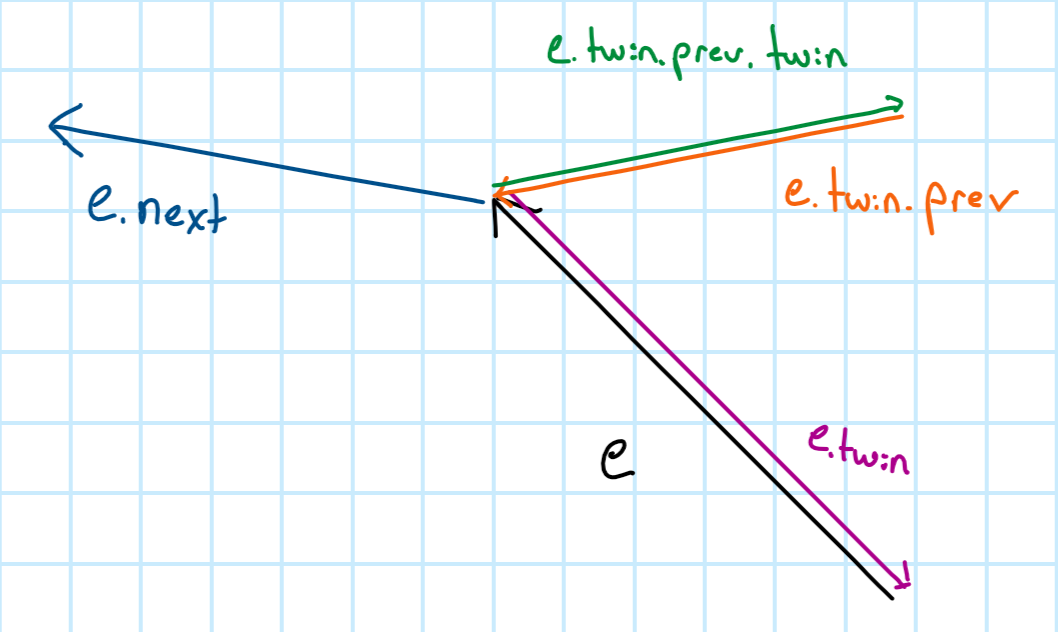 e.twin.prev.twin
e.next
e.twin.prev
e
e.twin